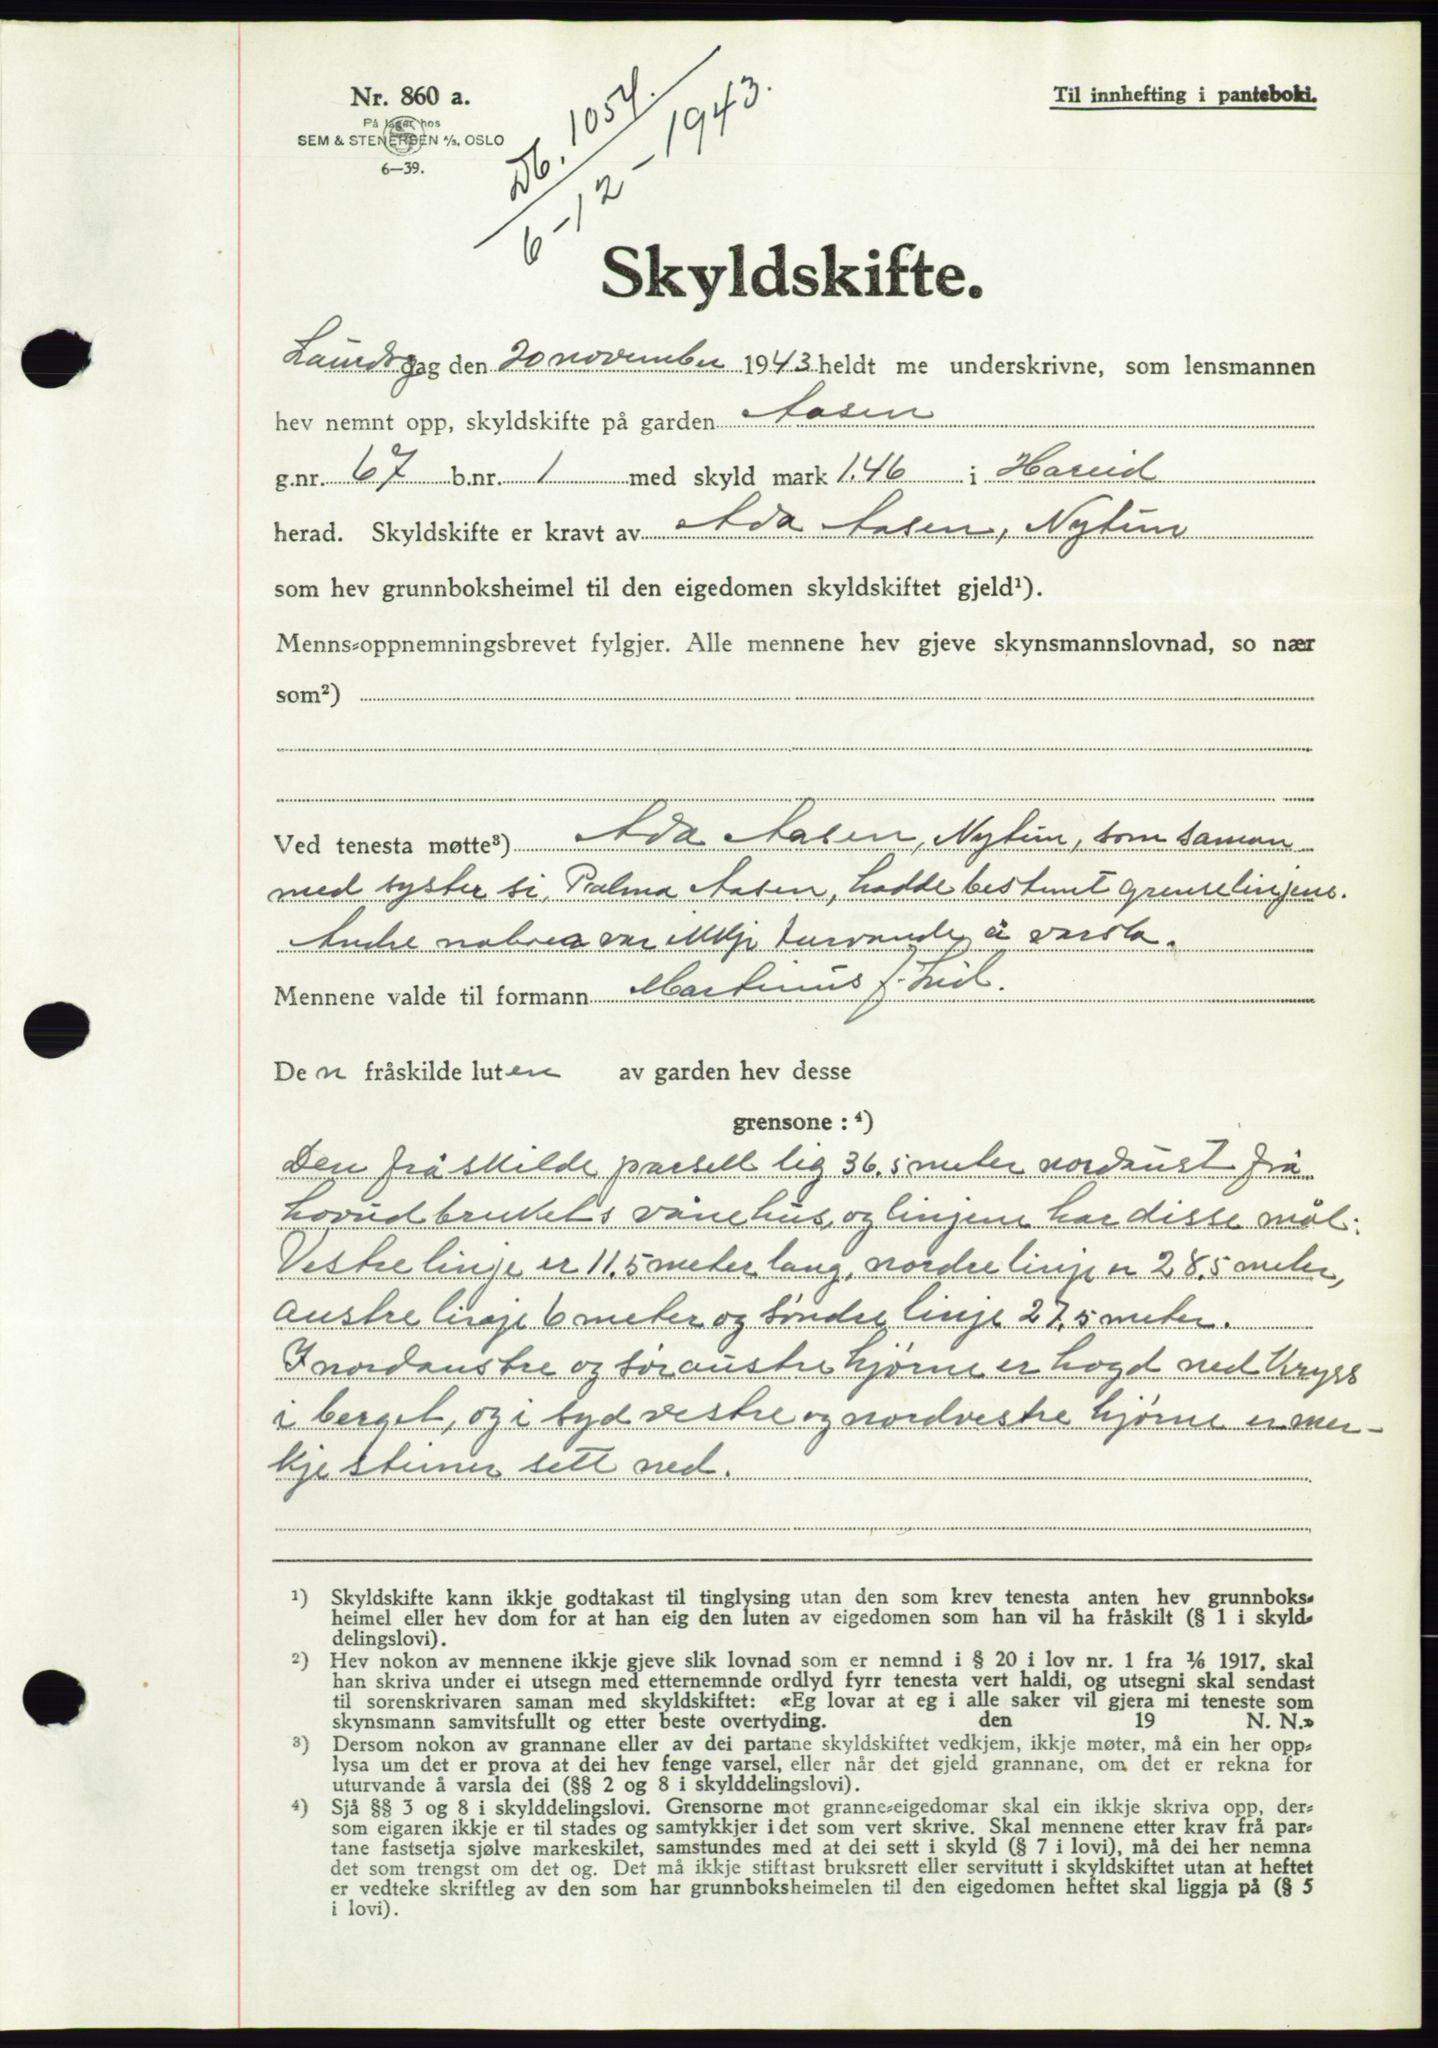 Nr. 860 a.
På lager hos
SEM & STENERSEN A/S, OSLO
6—39.
Db. 1054.
6-12-1943.
Til innhefting i panteboki.
Skyldskifte.
Laurdag den 20 november 1943 heldt me underskrivne, som lensmannen
hev nemnt opp, skyldskifte på garden Aasen
g.nr. 67 b.nr. 1 med skyld mark 1.46 i Hareid
herad. Skyldskifte er kravt av Ada Aasen, Nytun
som hev grunnboksheimel til den eigedomen skyldskiftet gjeld¹).
Menns-oppnemningsbrevet fylgjer. Alle mennene hev gjeve skynsmannslovnad, so nær
som²)
Ved tenesta møtte³) Ada Aasen, Nytun, som saman
med syster si, Palma Aasen, hadde bestemt grenselinjene.
Andre naboar var ikkje turvande å varsla.
Mennene valde til formann Martinus J. Lid.
Den fråskilde luten av garden hev desse
grensone : ⁴)
Den fråskilde parsell lig 36.5 meter nordaust frå
hovudbrukets vånehus, og linjene har disse mål:
Vestre linje er 11.5 meter lang, nordre linje er 28.5 meter,
austre linje 6 meter og søndre linje 27.5 meter.
I nordaustre og søraustre hjørne er hogd ned kryss
i berget, og i sydvestre og nordvestre hjørne er mer-
kjesteiner sett ned.
¹) Skyldskifte kann ikkje godtakast til tinglysing utan den som krev tenesta anten hev grunnboks-
heimel eller hev dom for at han eig den luten av eigedomen som han vil ha fråskilt (§ 1 i skyld-
delingslovi).
²) Hev nokon av mennene ikkje gjeve slik lovnad som er nemnd i § 20 i lov nr. 1 fra 1/6 1917, skal
han skriva under ei utsegn med etternemnde ordlyd fyrr tenesta vert haldi, og utsegni skal sendast
til sorenskrivaren saman med skyldskiftet: «Eg lovar at eg i alle saker vil gjera mi teneste som
skynsmann samvitsfullt og etter beste overtyding. den 19 N. N.»
³) Dersom nokon av grannane eller av dei partane skyldskiftet vedkjem, ikkje møter, må ein her opp-
lysa um det er prova at dei hev fenge varsel, eller når det gjeld grannane, om det er rekna for
uturvande å varsla dei (§§ 2 og 8 i skylddelingslovi).
⁴) Sjå §§ 3 og 8 i skylddelingslovi. Grensorne mot granne-eigedomar skal ein ikkje skriva opp, der-
som eigaren ikkje er til stades og samtykkjer i det som vert skrive. Skal mennene etter krav frå par-
tane fastsetja sjølve markeskilet, samstundes med at dei sett i skyld (§ 7 i lovi), må dei her nemna
det som trengst om det og. Det må ikkje stiftast bruksrett eller servitutt i skyldskiftet utan at heftet
er vedteke skriftleg av den som har grunnboksheimelen til den eigedomen heftet skal liggja på (§ 5
i lovi).